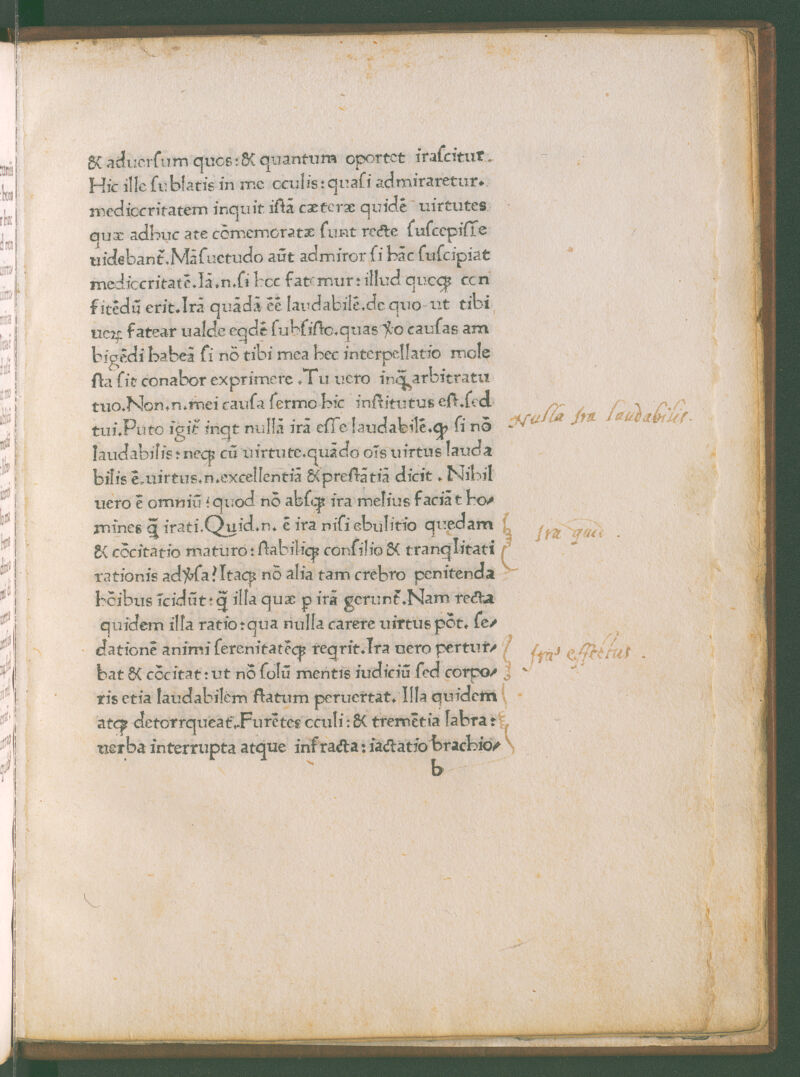 & aduerſum quos:& quantum oportet iraſcitur.
Hic ille ſublatis in me oculis:quaſi admiraretur.
mediocritatem inquit iſtā cæteræ quidē uirtutes
quæ adhuc ate cōmemoratæ ſunt recte ſuſcepiſſe
uidebant᷑.Māſuetudo aūt admiror ſi hāc ſuſcipiat
mediocritatē.Iā.n.ſi hoc fatemur:illud quoqꝫ con
fitēdū erit.Irā quādā ēē laudabilē.de quo ut tibi
ueꝝ fatear ualde eqdē ſubſiſto.quas ꝟo cauſas am
bigēdi habeā ſi nō tibi mea hec interpellatio mole
ſta ſit conabor exprimere .Tu uero inꝗ̄ arbitratu
tuo.Non.n.mei cauſa ſermo hic inſtitutus eſt.ſed
tui.Puto igit᷑ inqt nullā irā eſſe laudabilē.ꝙ ſi nō
laudabilis:neqꝫ cū uirtute.quādo oīs uirtus lauda
bilis ē.uirtus.n.excellentiā &preſtātiā dicit . Nihil
uero ē omniū:quod nō abſqꝫ ira melius faciāt ho⸗
mines ꝗ̄ irati.Quid.n. ē ira niſi ebulitio quędam
& cōcitatio maturo:ſtabiliqꝫ conſilio & tranqlitati
rationis adꝟſa?Itaqꝫ nō alia tam crebro penitenda
hōibus īcidūt:ꝗ̄ illa quæ p irā gerunt᷑.Nam recta
quidem illa ratio:qua nulla carere uirtus pōt. ſe⸗
dationē animi ſerenitatēqꝫ reqrit.Ira uero pertur⸗
bat & cōcitat:ut nō ſolū mentis iudiciū ſed corpo⸗
ris etia laudabilem ſtatum peruertat. Illa quidem
atqꝫ detorrqueat.Furētes oculi:& tremētia labra:
uerba interrupta atque infracta:iactatio brachio⸗
b
Nulla ira laudabilis.
Ira quid .
Irae effectus .